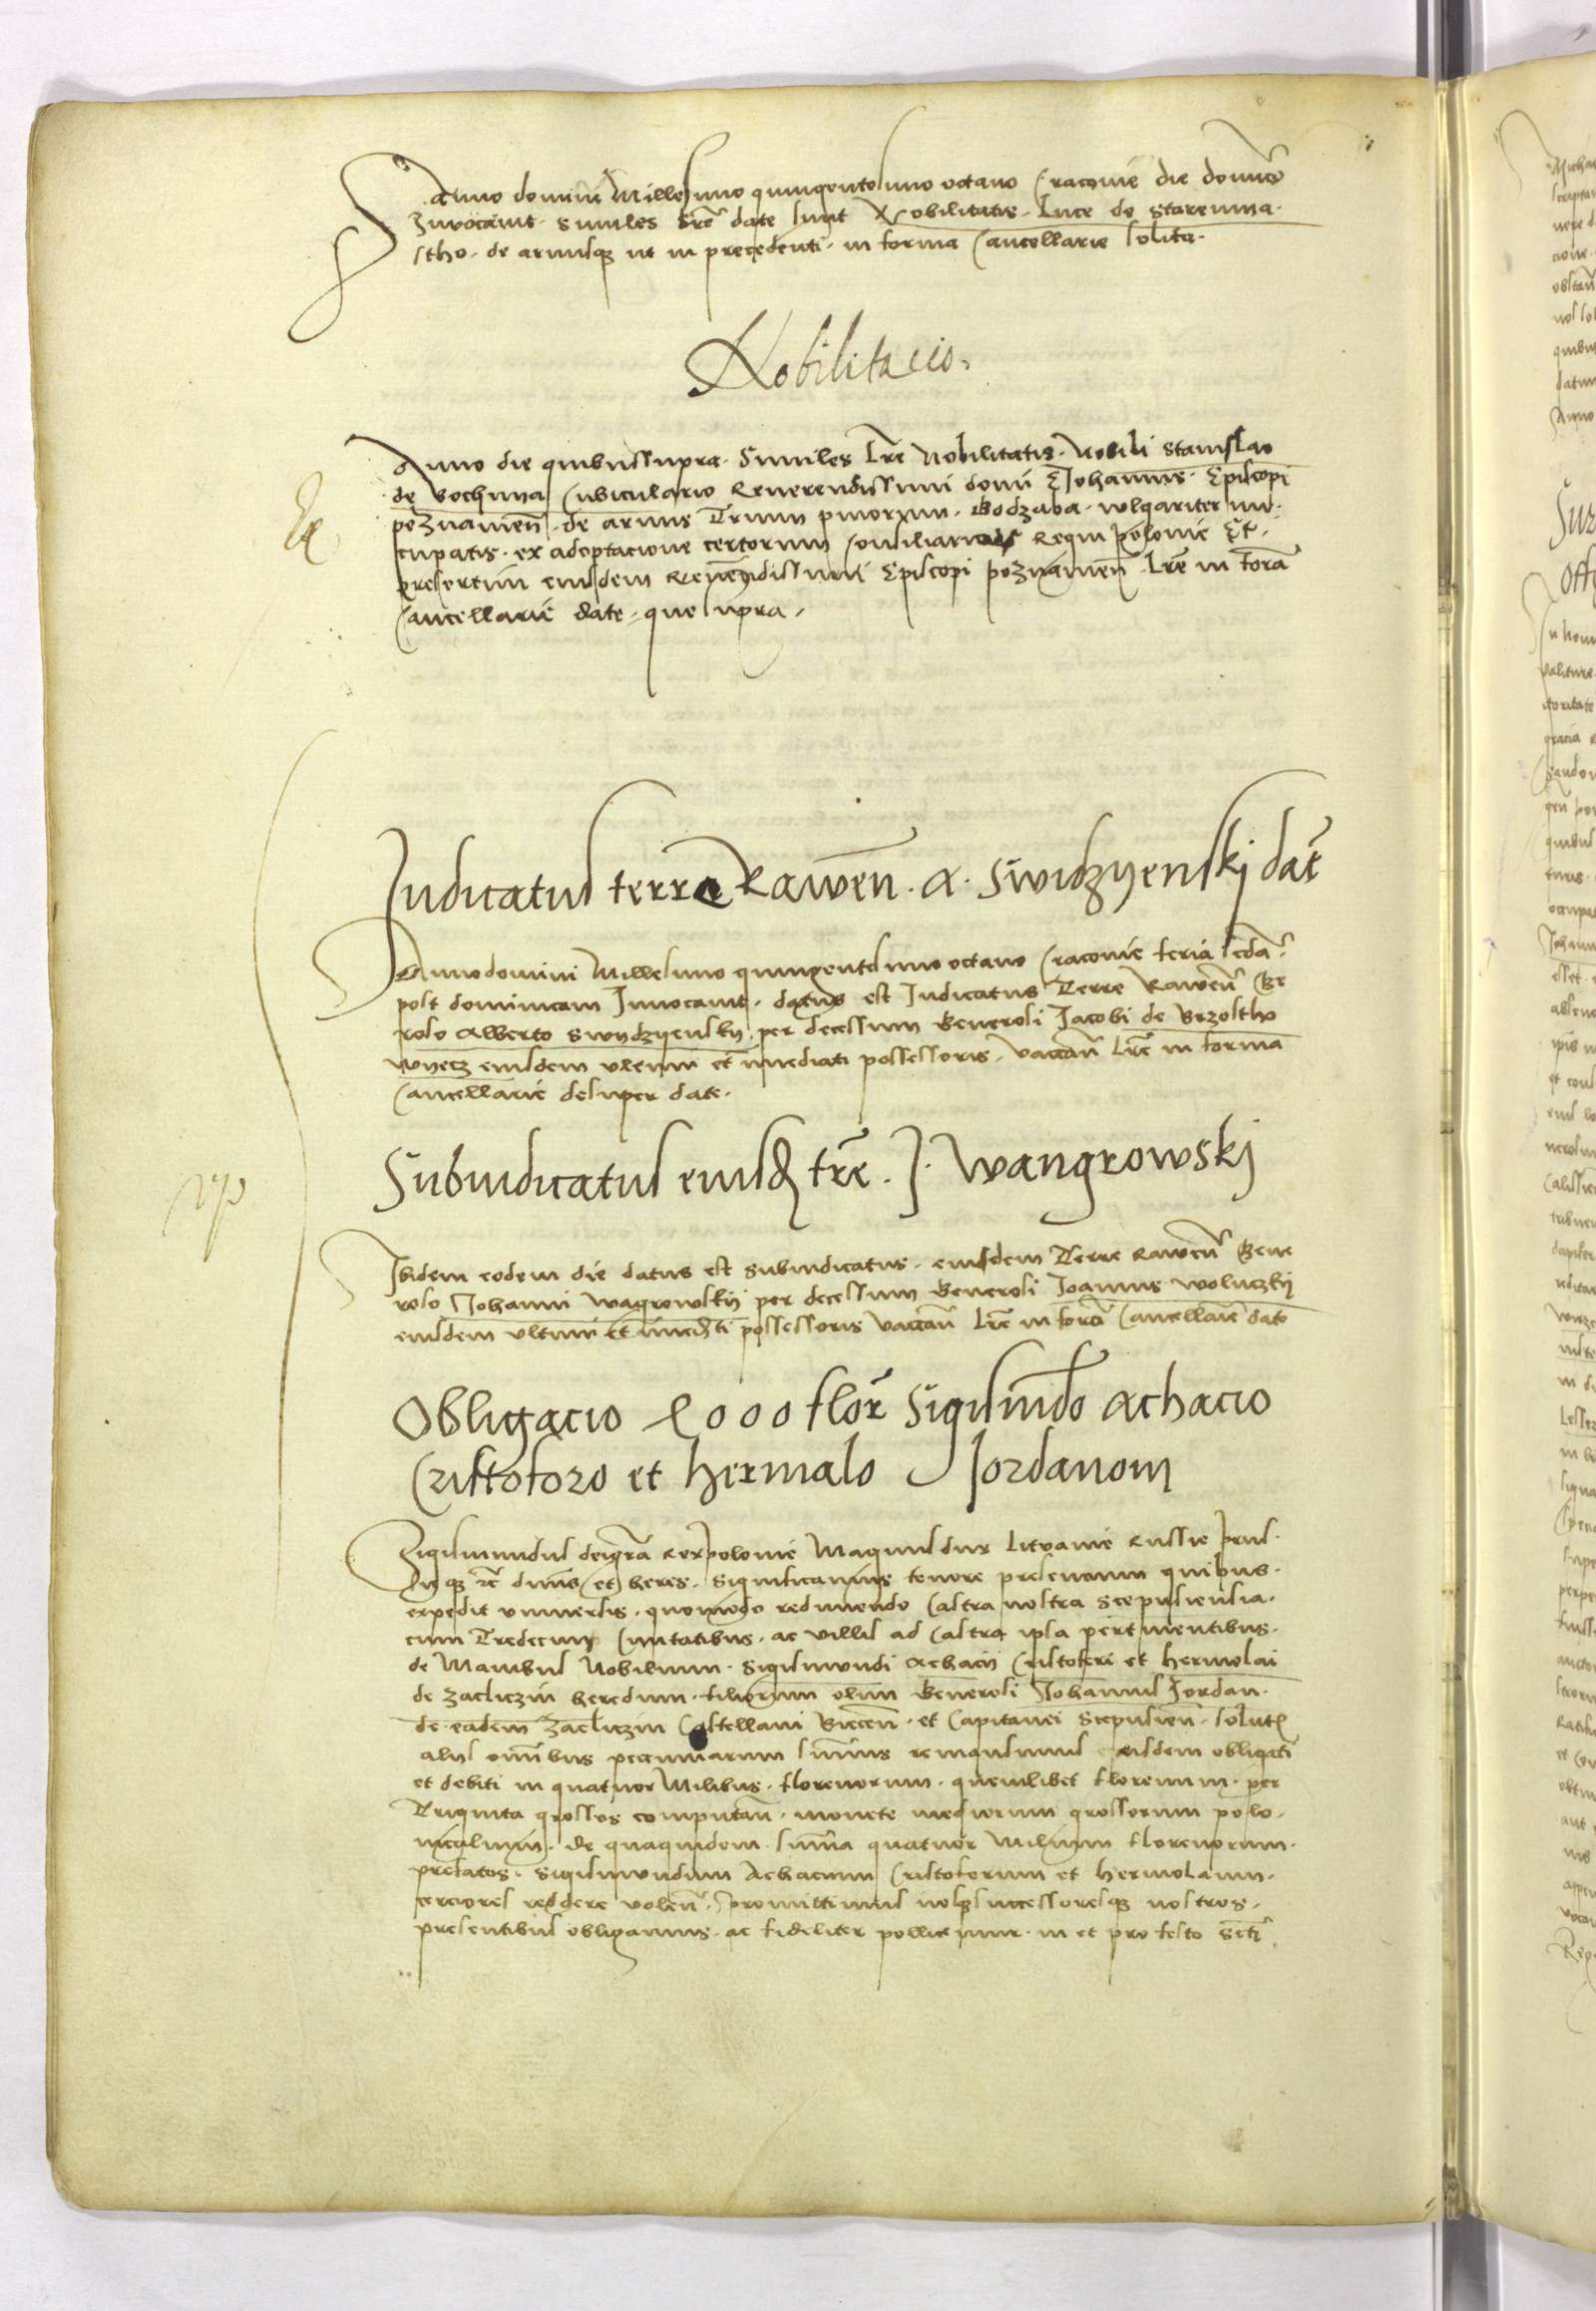 Anno domini Millesimo quingentesimo octavo Cracovie die dominico
Invocavit. Similes lr̄e date sunt Nobilitatis. Luce de Staremia
stho. de armisq3 ut in precedenti. in forma Cancellarie solita.
Nobilitacio.
Anno die quibussupra. Similes Lr̄e Nobilitatis. Nobili Stanislao
de Bochnna Cubiculario Reverendissimi domi Johannis. Episcopi
poznanien̄. de armis Trium pinorum. Bodzaba. vulgariter nu
cupatis. ex adoptacione certorum Consiliariorum Regni polonie Et
presertim eiusdem Reverendissimi Episcopi poznanien̄ Lr̄e in forā
Cancellarie date. que supra.
Iudicatus terre Rawen̄. A. Swidzyenskj dat̄
Anno domini Millesimo quingentesimo octavo Cracovie feria scd̄a
post dominicam Invocavit. datus est Iudicatus Terre Rawen̄ Ge
roso Alberto Swydzyensky. per decessum Generosi Jacobi de Brzostho
wyecz eiusdem ultimi et imediati possessoris. vacan̄ Lr̄e in forma
Cancellarie desuper date.
Subiudicatus eiusd tr̄e. J. Wangrowskj
Ibidem eodem die datus est subiudicatus. eiusdem Terre Rawen̄ Gene
roso Johanni Wagrowskij per decessum Generosi Joannis Woluczkij
eiusdem ultimi et imediati possessoris vacan̄ Lr̄e in forā Cancellarie date
Obligacio 4000 flor̄ Sigismūdo Achacio
Cristoforo et hermolao Jordanom
Sigismundus dei grā Rex polonie Magnus dux Litvanie Russie prus
sieq3 etc̄ dnn̄s et heres. Significamus tenore presencium quibus.
expedit universis. quomodo redimendo Castra nostra Scepusiensia.
cum Tredecim Civitatibus. ac villis ad Castra ipsa pertinentibus.
de Manibus Nobilium. Sigismundi Achacij Cristoferi et hermolai
de Zacliczin heredum. filiorum olim Generosi Johannis Jordan.
de eadem Zacliczin Castellani Biecen̄. et Capitanei Scepusien̄. solutis
aliis omībus pecuniarum sum̄is remansimus eisdem obligati
et debiti in quatuor Milibus. florenorum. quemlibet florenum. per
Triginta grossos computan̄. monete mediorum grossorum polo
nicalium. De quaquidem sum̄a quatuor Milium florenorum.
prefatos. Sigismundum Achacium Cristoferum et hermolaum.
cerciores reddere volen̄. promittimus nosq3 successoresq3 nostros.
presentibus obligamus. ac fideliter pollicemur. in et pro festo Sct̄i